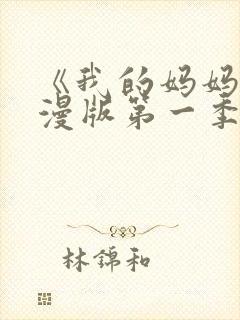 《我的妈妈
漫版第一季
林錦和